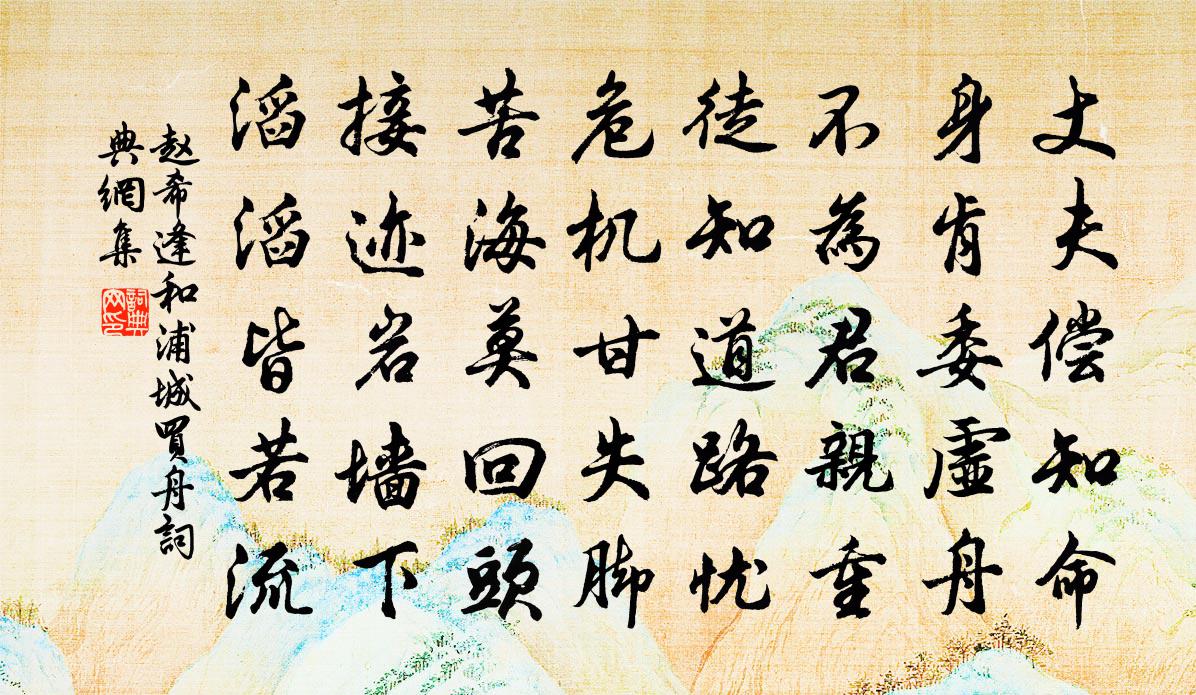 丈夫偿知命
身肯委虚舟
不為君親重
徒知道路忧
危机甘失脚
苦海莫回頭
接迹岩墙下
滔滔皆若流
赵希逢和浦城買舟詞
典網集
詞典网印